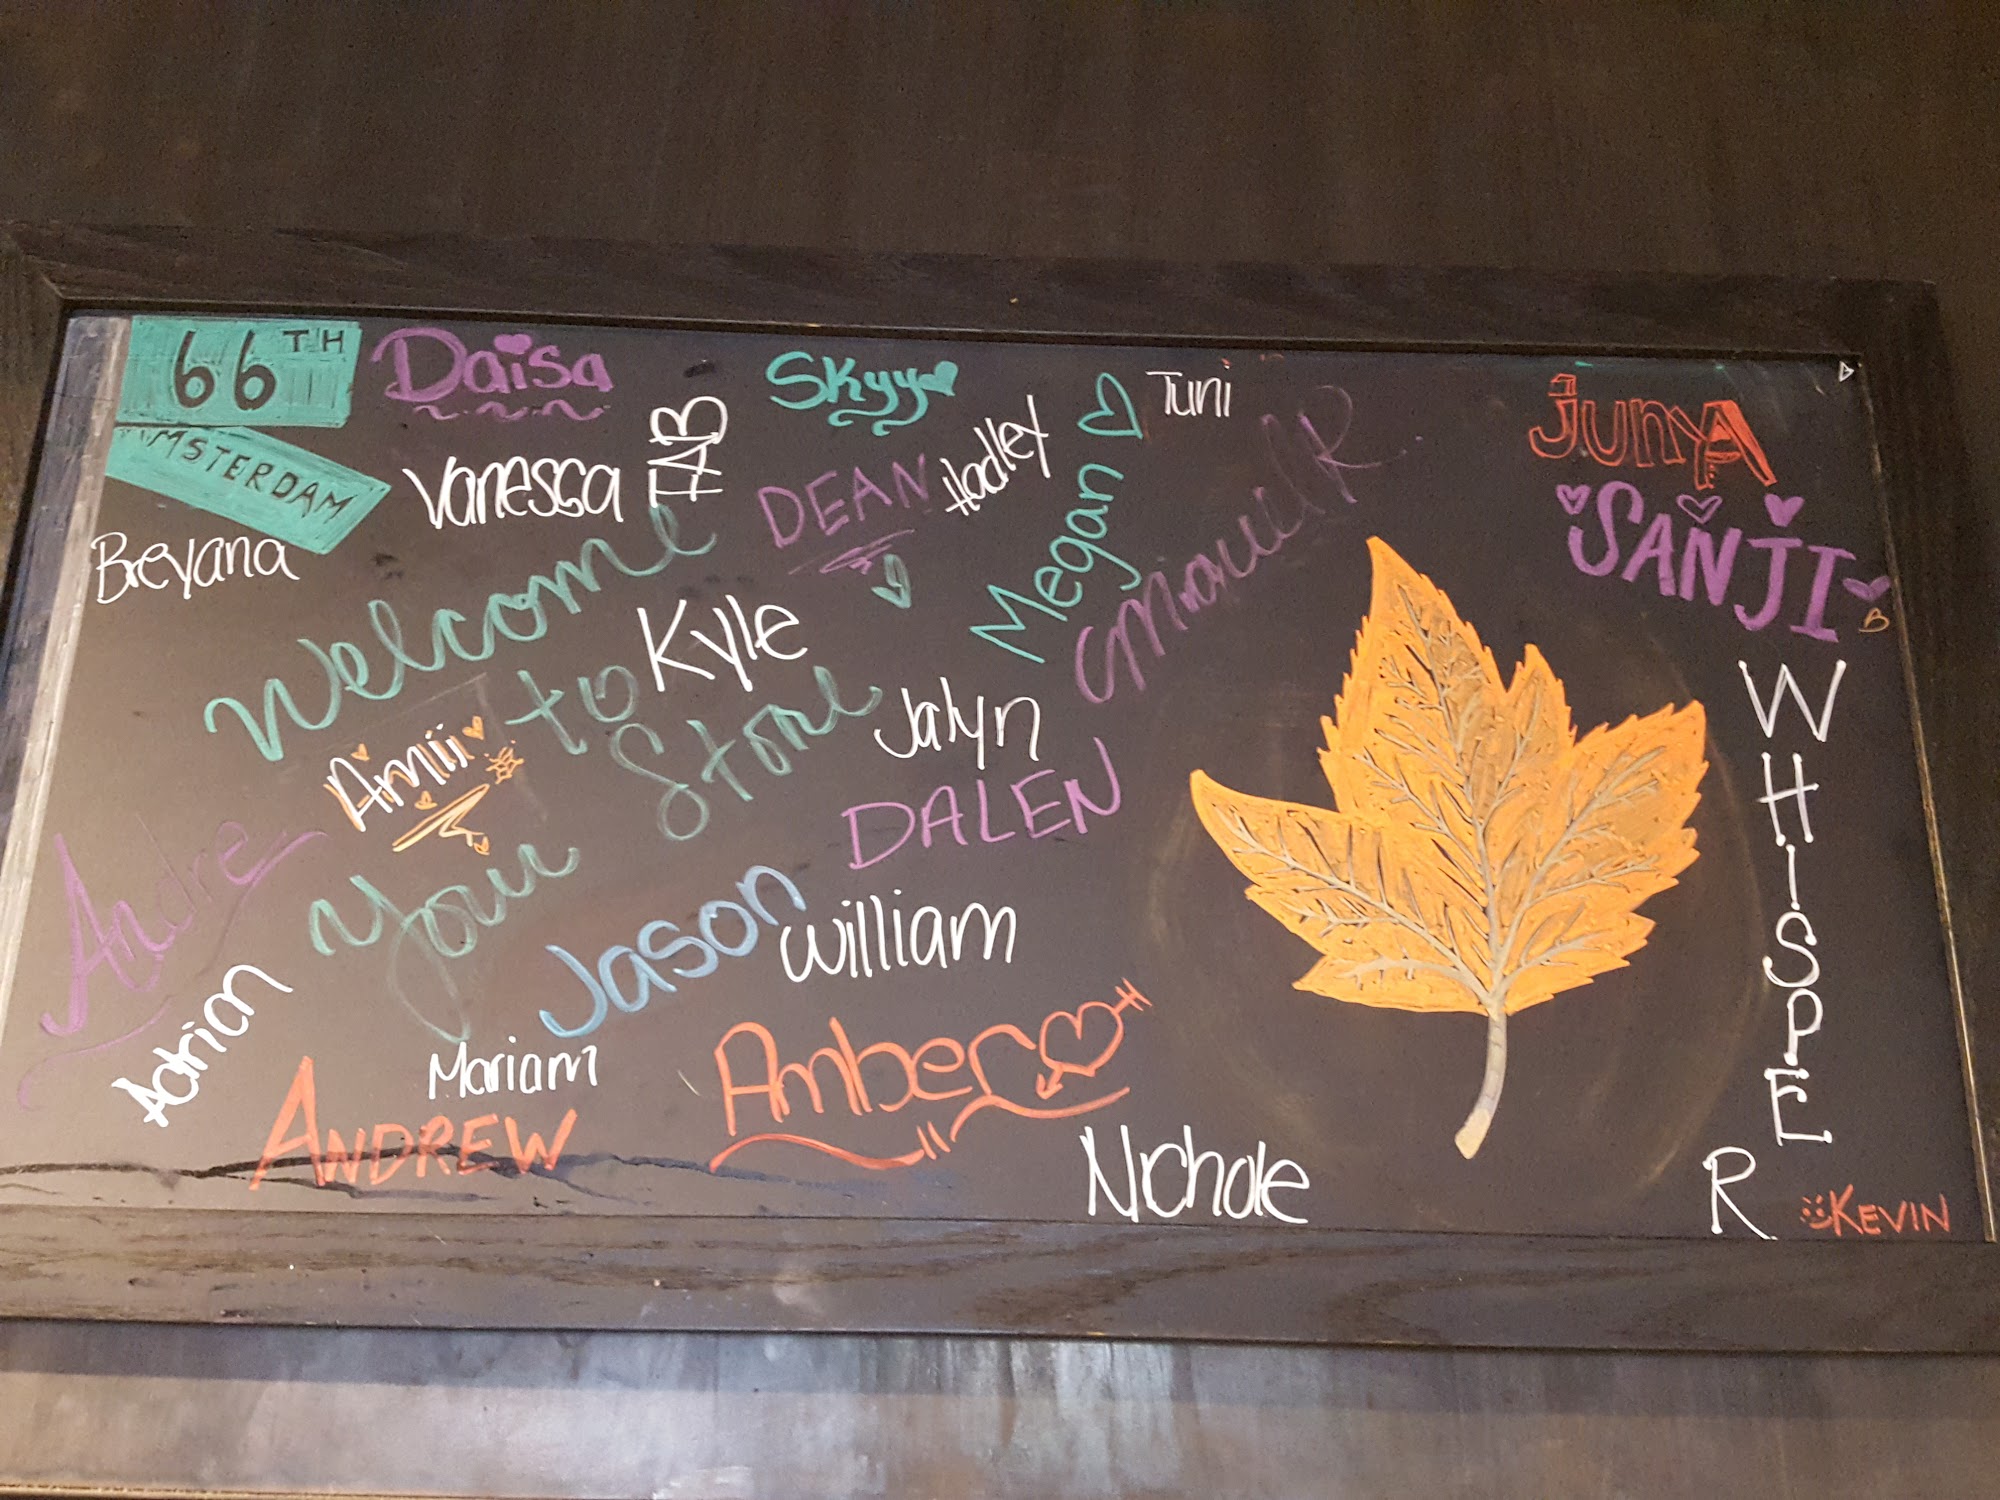 66TH
MSTERDAM
Daisa
Skyy
Tuni
JUNYA
Vanessa
TAB
DEAN
Hadley
Megan
SANJI
Breyana
Welcome
to
Your Store
Kyle
Jalyn
Amiii
DALEN
WHISPER
Andre
Jason
William
Adrian
Mariam
Amber
ANDREW
Nichole
KEVIN